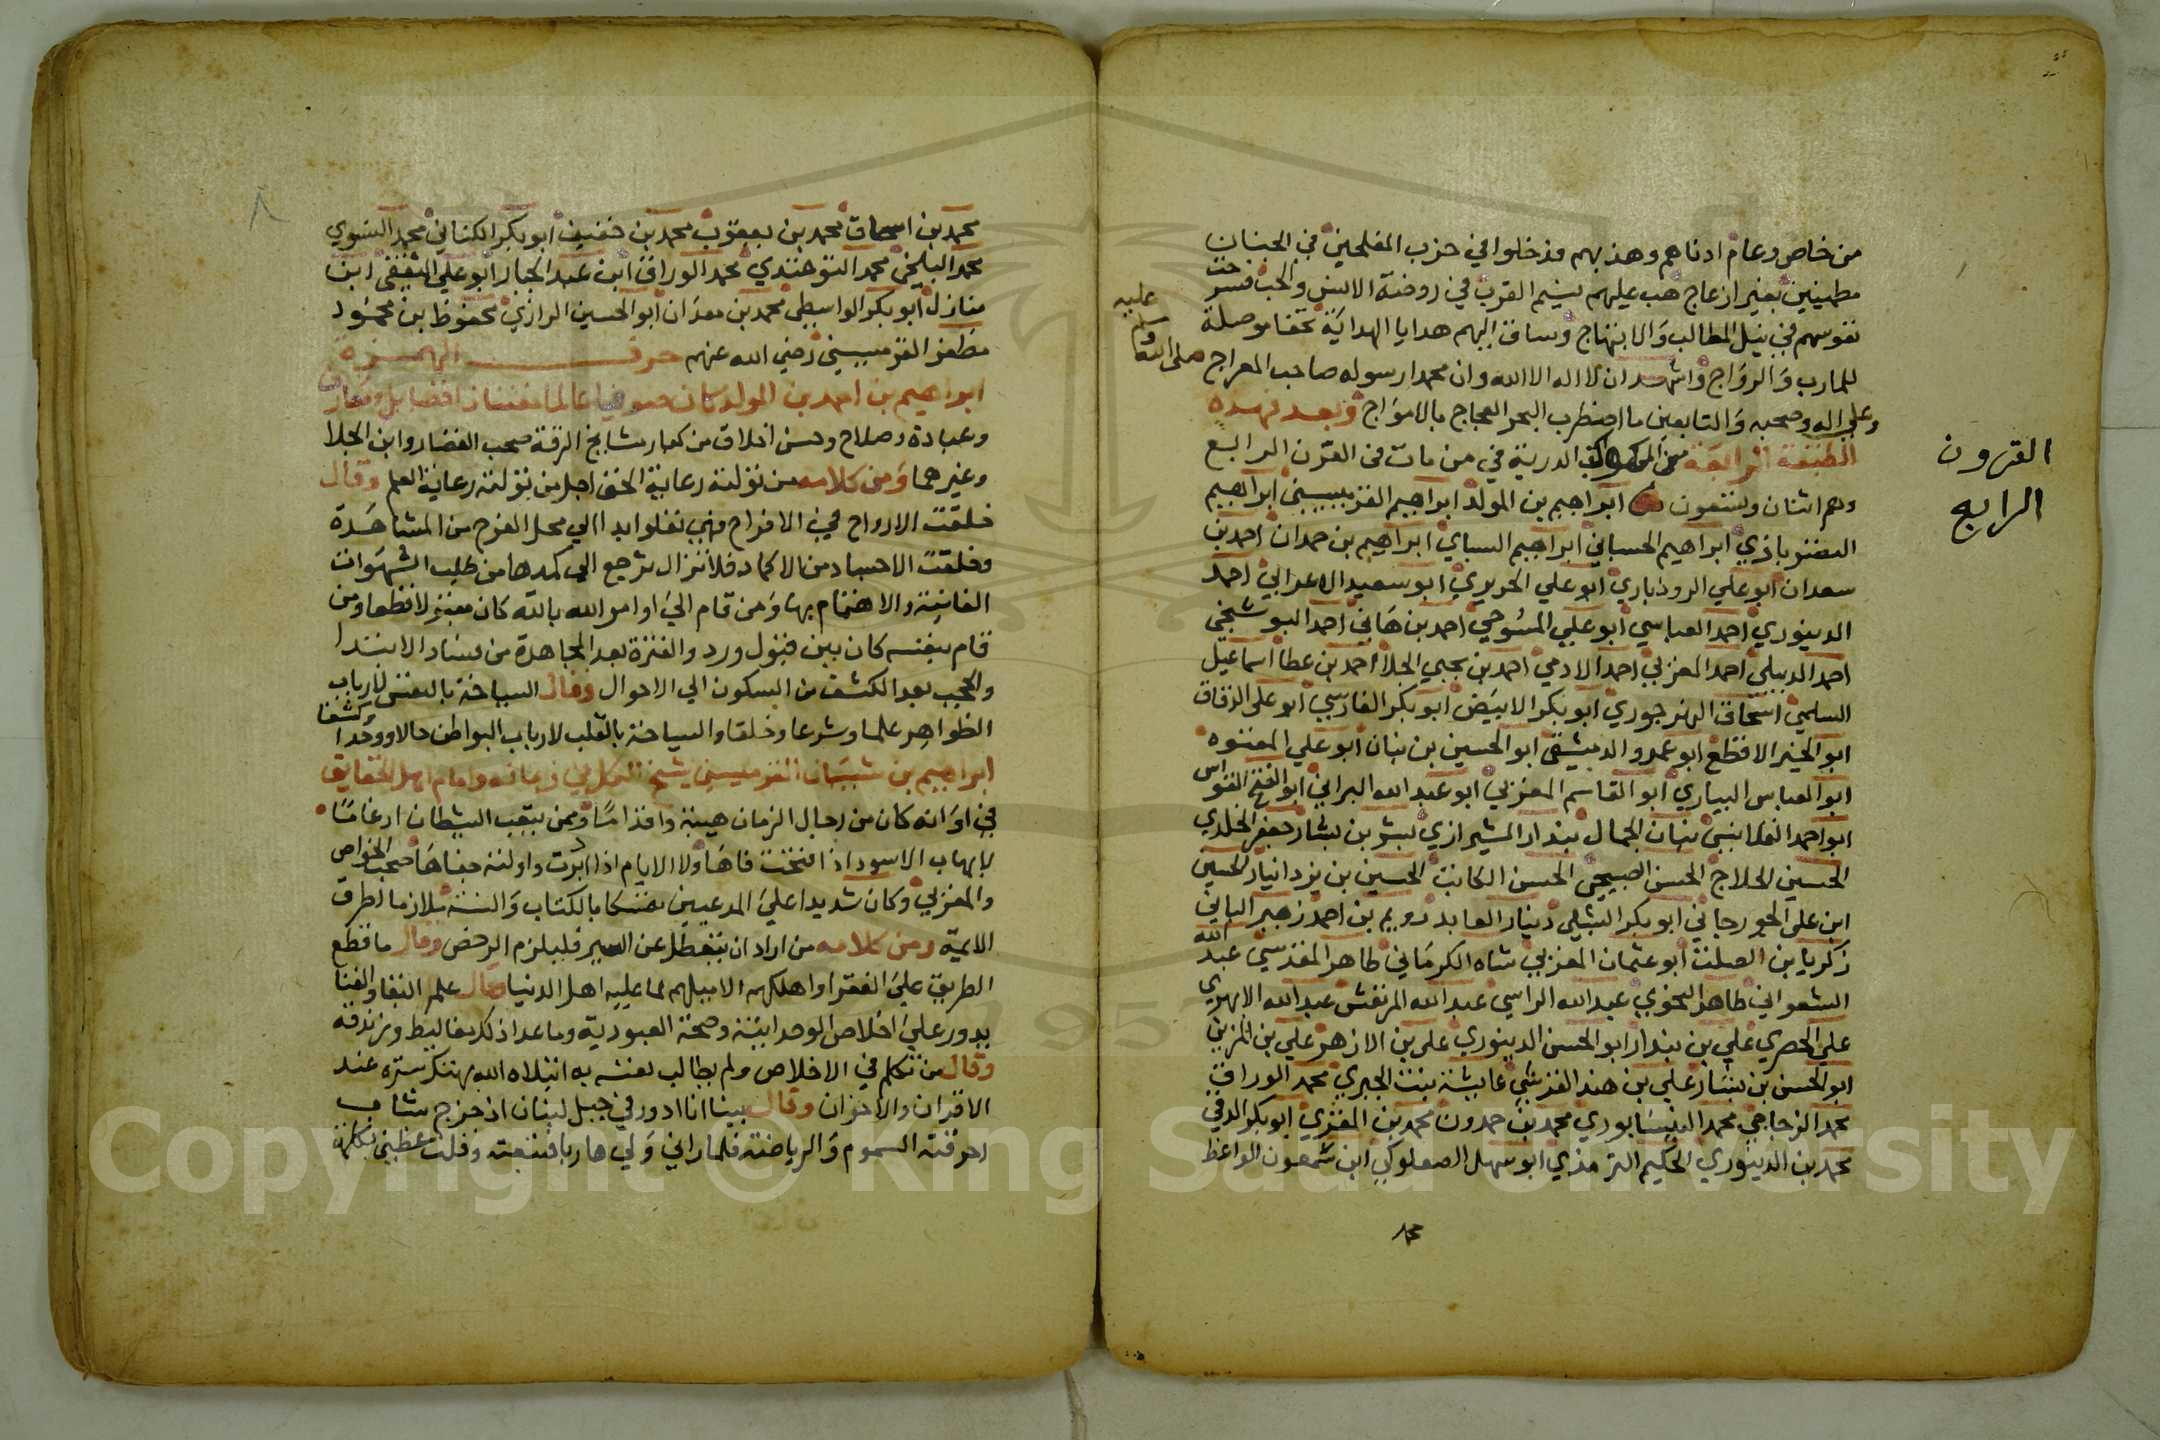 من خاص وعام ادناهم وهذبهم فدخلوا في حزب المفلحين في الجنان
مطمينين بغير ازعاج هب عليهم نسيم القرب في روضة الانس والحب فسرحت
نفوسهم في نيل المطالب والابتهاج وساق اليهم هدايا الهداية تحفا موصلة
للمارب والرواج واشهد ان لا اله الا الله وان محمدا رسوله صاحب المعراج صلى الله عليه وسلم
وعلى اله وصحبه والتابعين ما اضطرب البحر العجاج بالامواج وبعد فهذه
الطبقة الرابعة من الكواكب الدرية في من مات في القرن الرابع
القرون
الرابع
وهم اثنان وتسعون ابراهيم بن المولد ابراهيم القرميسيني ابراهيم
ابراهيم الحساني ابراهيم ابراهيم بن حمدان احمد بن
سعدان ابو علي الروذباري ابو علي الحريري ابو سعيد الاعرابي احمد
الدينوري احمد العباسي ابو علي المسوحي احمد بن هاني احمد البوشنجي
احمد الدبيلي احمد المغربي احمد الادمي احمد بن يحيي الجلا احمد بن عطا اسماعيل
السلمي اسحاق النهرجوري ابو بكر الابيض ابو بكر الفارسي ابو علي الدقاق
ابو الخير الاقطع ابو عمرو الدمشقي ابو الحسين بن بنان ابو علي
ابو العباس السياري ابو القاسم المغربي ابو عبد الله البراني ابو الفتح القواس
ابو احمد القلانسي بنان الجمال بندار الشيرازي بشر بن بشار جعفر الخلدي
الحسين الحلاج الحسن الصبيحي الحسن الكاتب الحسين بن يزدانيار الحسين
ابن علي الجورجاني ابو بكر الشبلي دينار العابد رويم بن احمد زهير البابي
زكريا بن الصلت ابو عثمان المغربي شاه الكرماني طاهر المقدسي عبد الله
الشعراني طاهر عبد الله الراسي عبد الله المرتعش عبد الله الابهري
علي الحصري علي بن بندار ابو الحسن الدينوري علي بن الازهر علي بن المزين
ابو الحسن بن بشار علي بن هند القرشي عايشة بنت الحيري محمد الوراق
محمد الزجاجي محمد النيسابوري محمد بن حمدون محمد بن المقري ابو بكر الدقي
محمد بن الدينوري الحكيم الترمذي ابو سهل الصعلوكي ابن شمعون الواعظ
محمد
محمد بن اسحاق محمد بن يعقوب محمد بن خفيف ابو بكر الكتاني محمد النسوي
محمد البلخي محمد التوحندي محمد الوراق ابن عبد الجبار ابو علي الثقفي ابن
منازل ابو بكر الواسطي محمد بن معدان ابو الحسين الرازي محفوظ بن محمود
مظفر القرميسيني رضي الله عنهم حرف الهمزة
ابراهيم بن احمد بن المولد كان صوفيا عالما مفننا ذا فضايل ومعارف
وعبادة وصلاح وحسن اخلاق من كبار مشايخ الرقة صحب القصار وابن الجلا
وغيرهما ومن كلامه من تولته رعاية الحق اجل من تولته رعاية العلم وقال
خلقت الارواح من الافراح فهي تعلوا ابدا الي محل الفرح من المشاهدة
وخلقت الاجساد من الاكماد فلا تزال ترجع الي كمدها من طلب الشهوات
الفانية والاهتمام بها ومن قام الي اوامر الله بالله كان مقبولا قطعا ومن
قام بنفسه كان بين قبول ورد والفترة بعد المجاهدة من فساد الابتدا
والحجب بعد الكشف من السكون الي الاحوال وقال السياحة بالنفس لارباب
الظواهر علما وشرعا وخلقا والسياحة بالقلب لارباب البواطن حالا ووجدا وكشفا
ابراهيم بن شيبان القرميسيني شيخ الجبل في زمانه وامام اهل الحقايق
في اوانه كان من رجال الزمان هيبة واقداما وممن يتعب الشيطان ارغاما
لا يهاب الاسود اذا فتحت فاها ولا الايام اذا ابرزت واولته جفاها صحب الخواص
والمغربي وكان شديدا على المدعيين متمسكا بالكتاب والسنة ملازما لطرق
الايمة ومن كلامه من اراد ان يتعطل عن السير فليلزم الرخص وقال ما قطع
الطريق على الفقرا واهلكهم الا ميلهم لما عليه اهل الدنيا وقال علم البقا والفنا
يدور على اخلاص الوحدانية وصحة العبودية وما عدا ذلك مغاليط وزندقة
وقال من تكلم في الاخلاص ولم يطالب نفسه به ابتلاه الله بهتك ستره عند
الاقران والاخوان وقال بينا انا ادور في جبل لبنان اذ خرج شاب
احرقته السموم والرياضة فلما راني ولي هاربا فتبعته وقلت عظني بكلمة